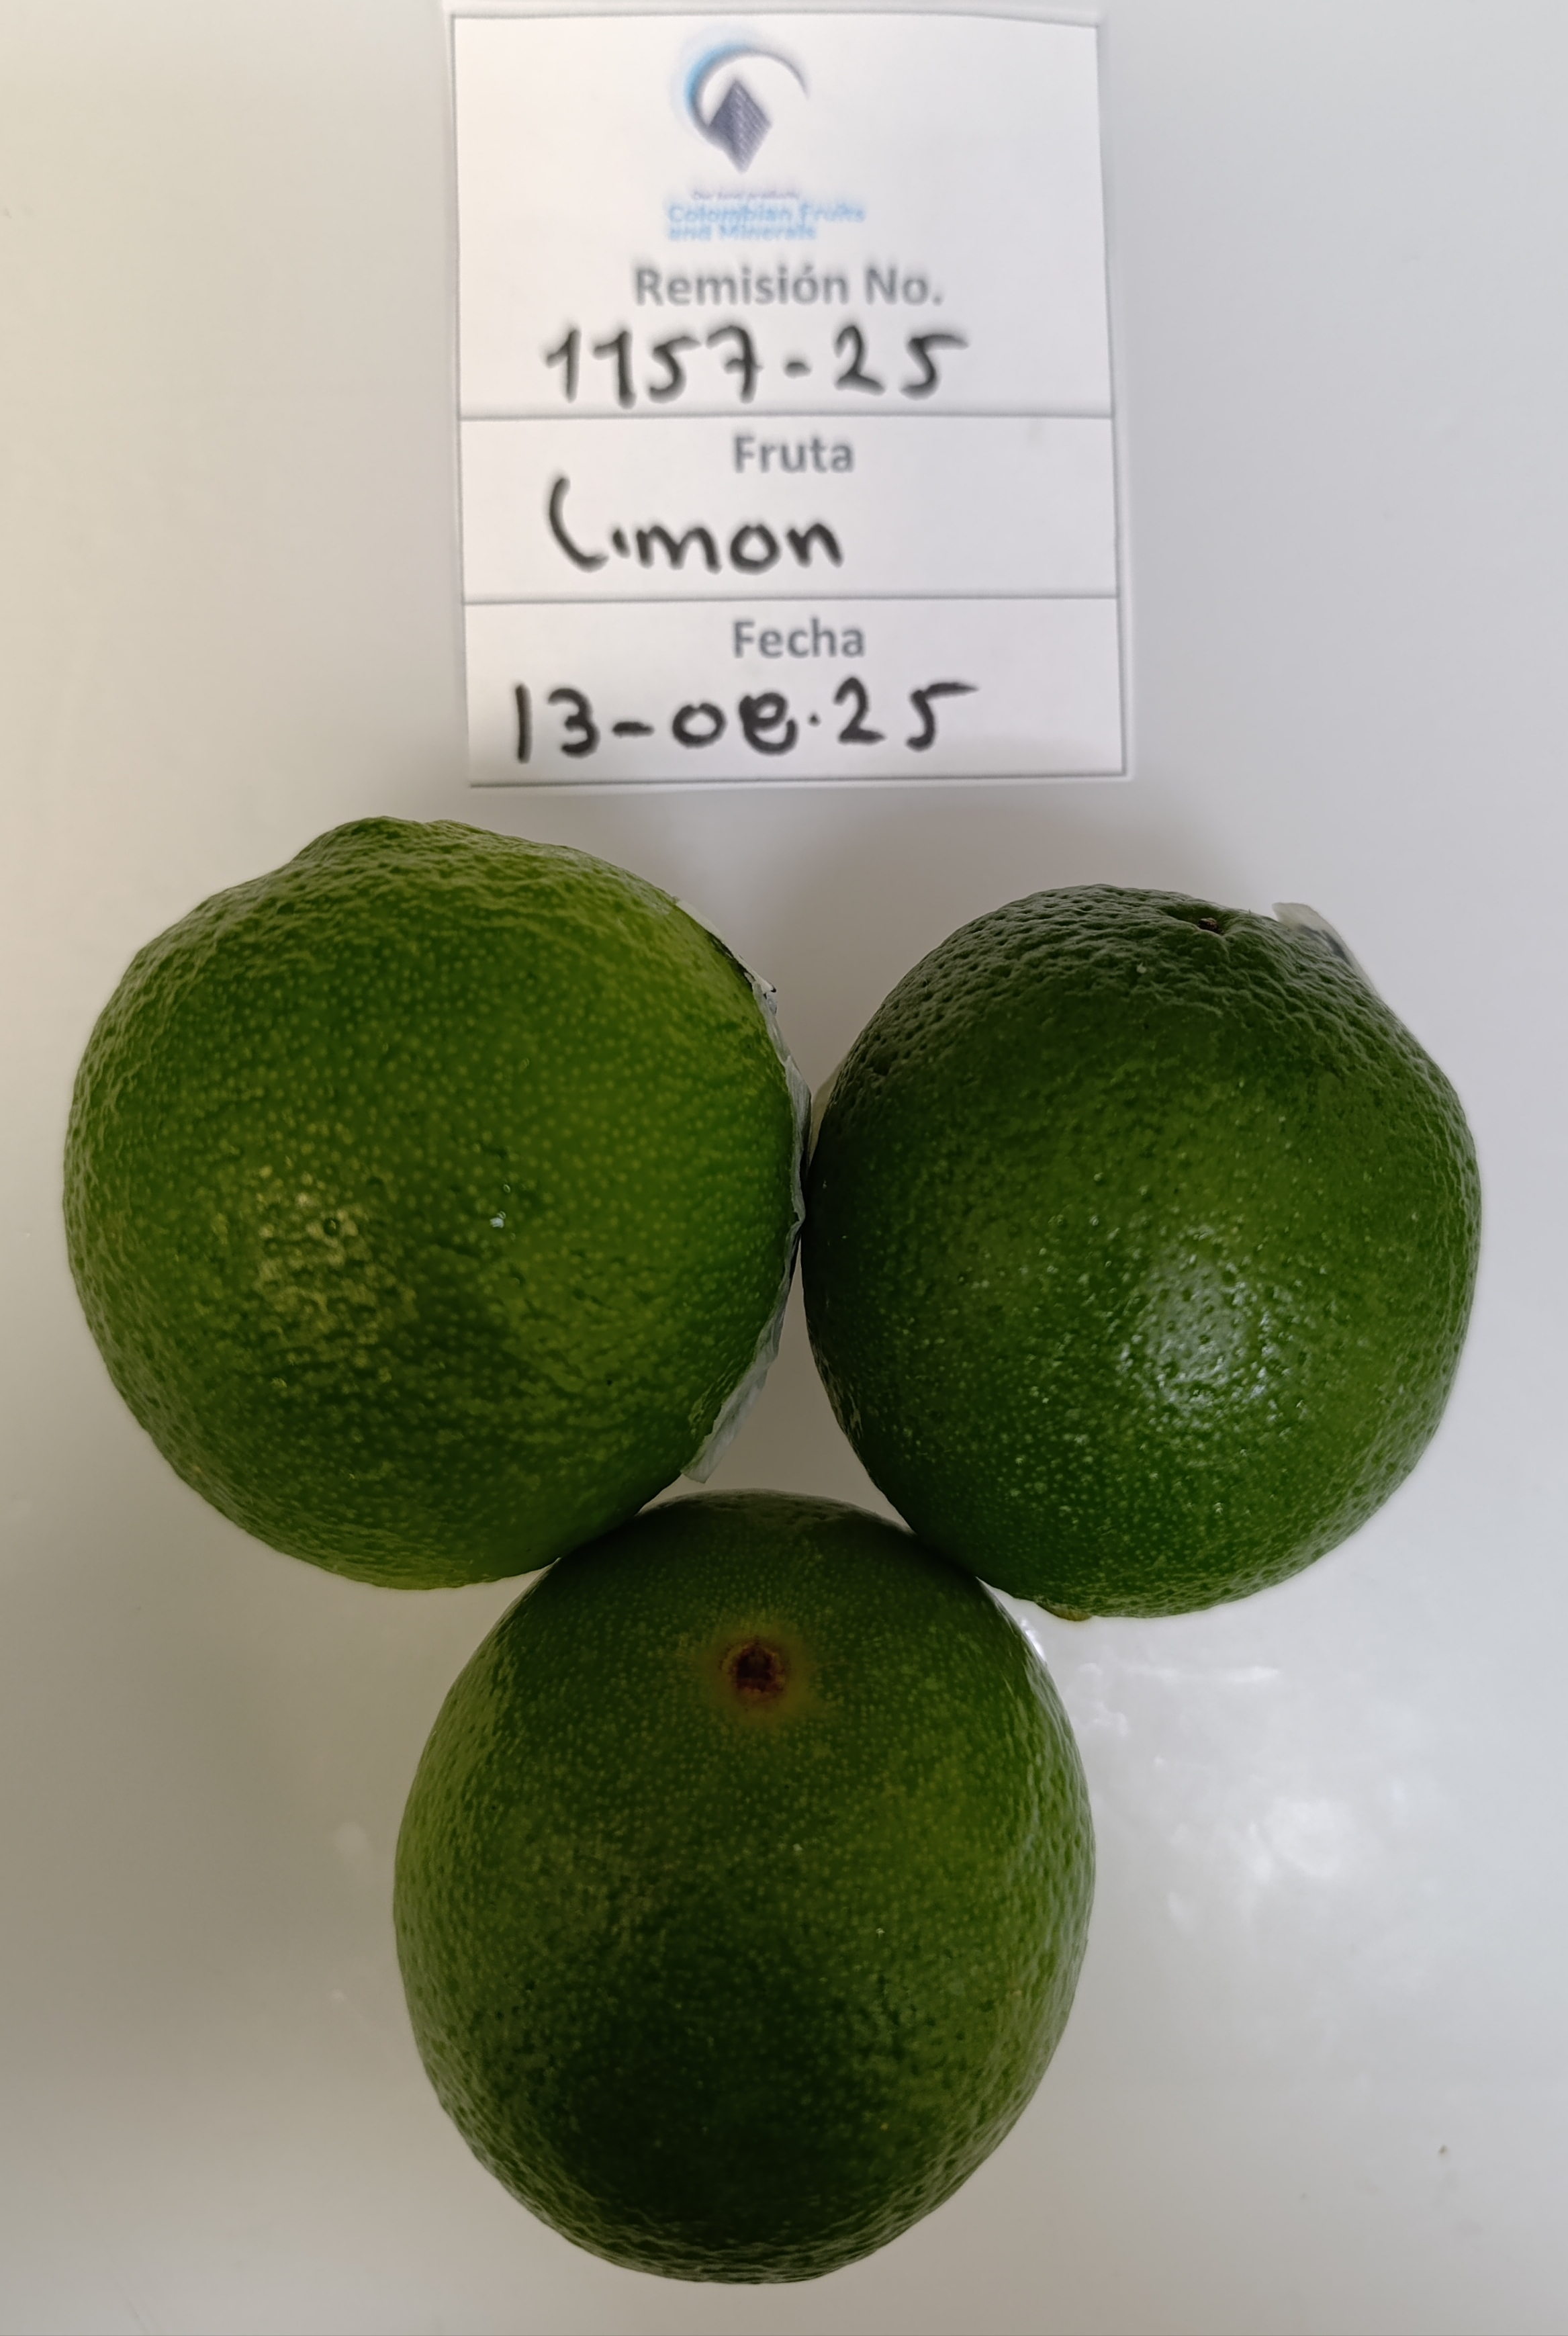 Colombian Fruits
and Minerals
Remisión No.
1157-25
Fruta
Limon
Fecha
13-08-25